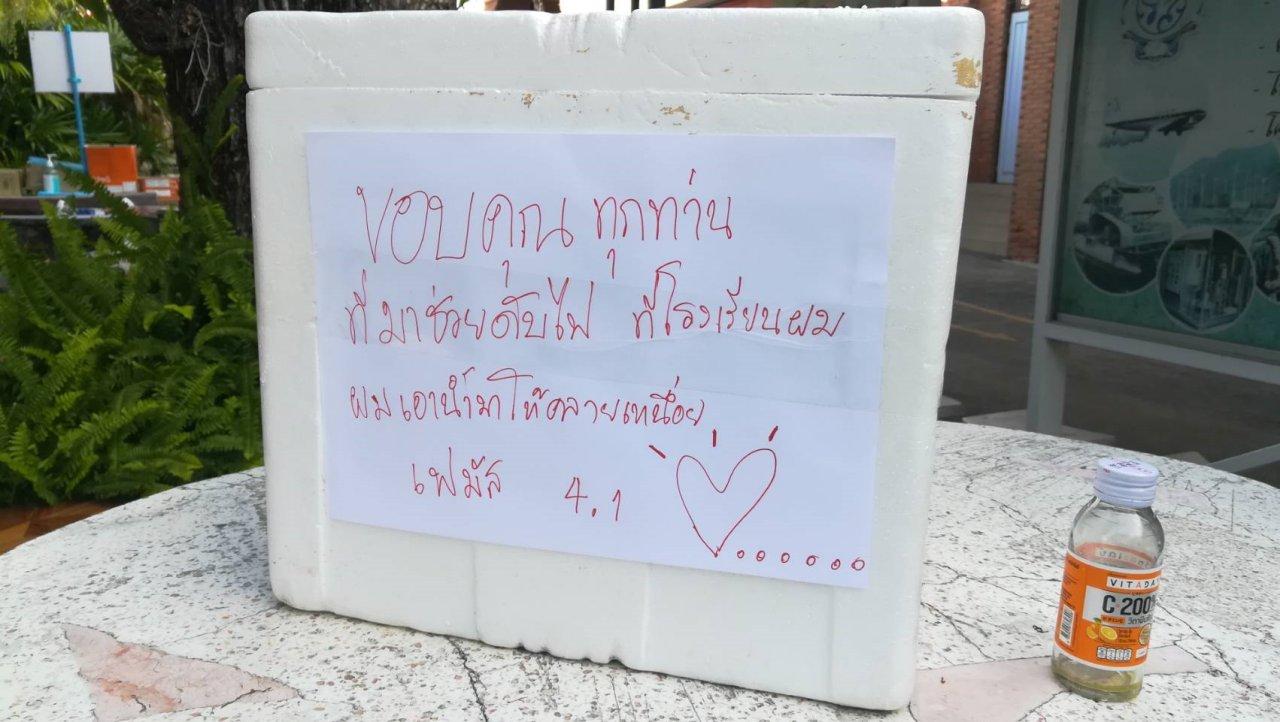 ขอบคุณ ทุกท่าน
ที่มาช่วยดับไฟ ที่โรงเรียนผม
ผมเอาน้ำมาให้คลายเหนื่อย
เฟมัส 4.1
VITADAY
C 200%